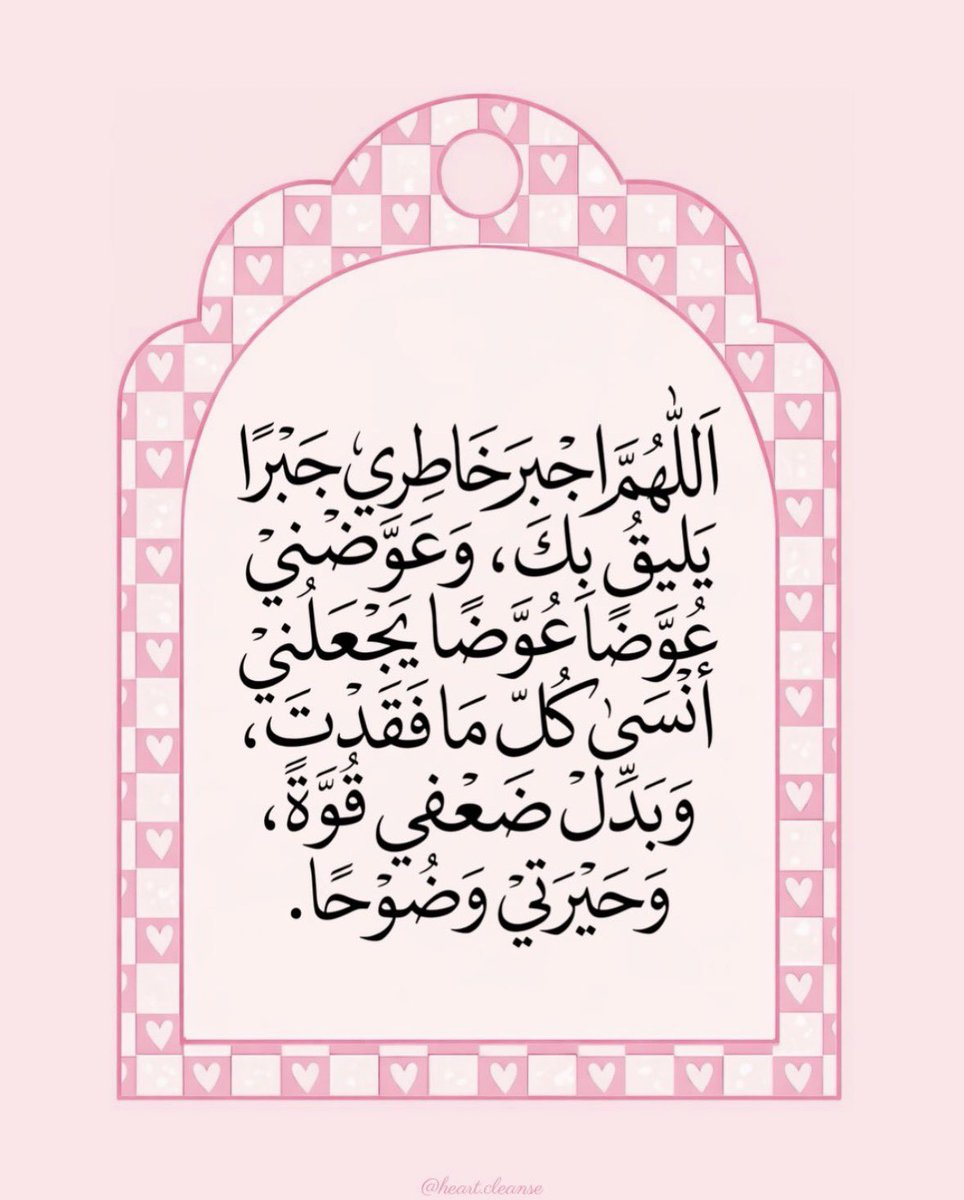 اَللّٰهُمَّ اجْبرَ خَاطِري جَبْرًا
يَليقُ بِكَ، وَعَوَّضْنيْ
عُوَّضًا عُوَّضًا يَجْعَلُنيْ
أنْسَىٰ كُلّ مَا فَقَدْتَ،
وَبَدِّلْ ضَعْفي قُوَّةً،
وَحَيْرَتيْ وَضُوْحًا.
@heart.cleanse